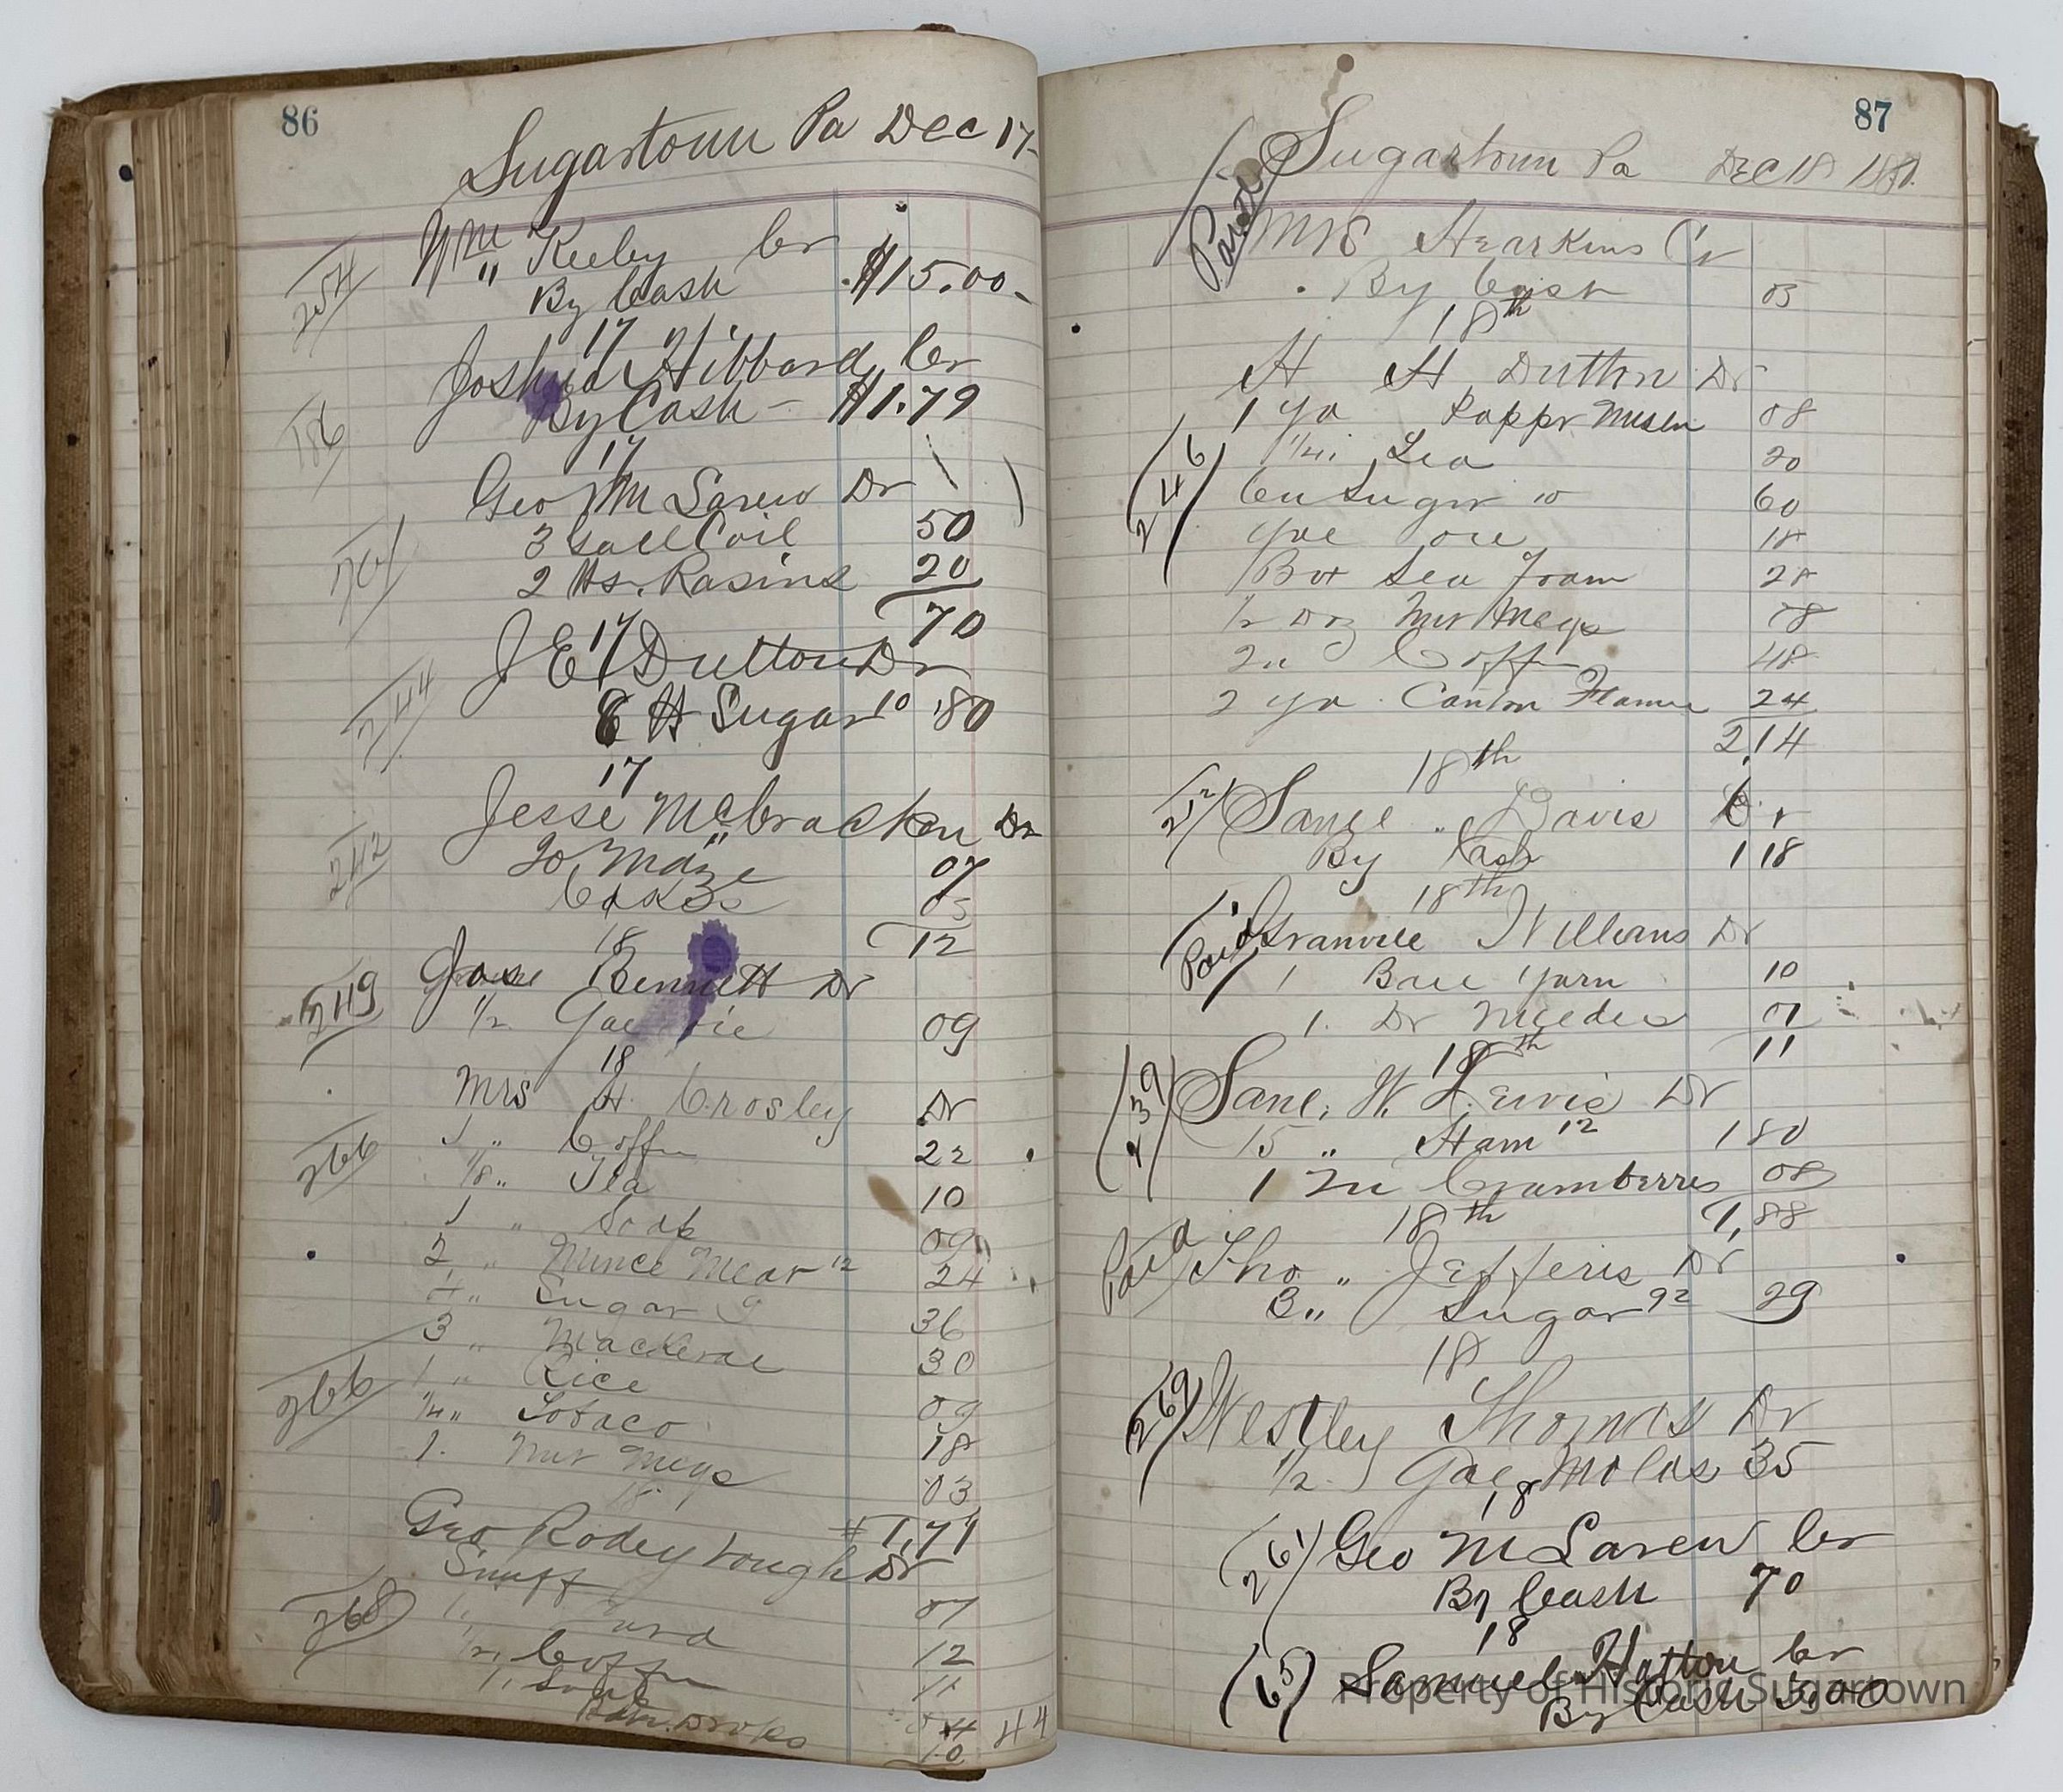 86
Sugartown Pa Dec 17
254
Wm Keeley Cr
" By Cash $15.00
17
Joshua Hibbard Cr
186
By Cash - $1.79
17
Geo M Laren Dr
3 Gall Coil 50
261
2 lbs. Rasins 20
70
17
J E Dutton Dr
244
8 lb Sugar 10 .80
17
Jesse McCracken Dr
242
To Maze 07
Cakes 05
12
18
249
Jase Bennett Dr
1/2 Gae 09
18
Mrs H. Crosley Dr
1 " Coffe 22
266
1/8 " Tea 10
1 " Soap 09
2 " Mince Meat 12 24
4 " Sugar 9 36
3 " Mackerae 30
1 " Rice 09
266
1/4 " Tobaco 18
1. Nut Megs 03
18
$1,71
Geo Rodeybough Dr
Snuff 07
268
1 " Lard 12
1/2 " Coffe 11
1 " Soap 04
Drops 10
44
87
Sugartown Pa Dec 18 1880.
Paid
Mrs Hearkins Cr
By Cash 05
18th
H H Dutton Dr
1 Yd Pappr Muslin 08
246
1/4 " Tea 20
6 " Sugar 10 60
Gae oie 18
1 Box Sea Foam 28
1/2 Doz Nut Megs 08
2 " Coffe 48
2 yd. Canton Flanne 24
2,14
18th
252
Samee " Davis Cr
By Cash 1 18
18th
Paid
Granville Williams Dr
1 Bale Yarn 10
1. Dr Needes 01
11
18th
239
Saml. W. Lewis Dr
15 " Ham 12 1 80
1 Qu Cramberris 08
1,88
18th
Paid
Tho " Jefferis Dr
3 " Sugar 9 1/2 29
18
269
Westley Thomas Dr
1/2 Gae Molas 35
18
261
Geo M Laren Cr
By Cash 70
18
(65)
Samuel Hatton Cr
By Cash 5,00
Property of Historic Sugartown